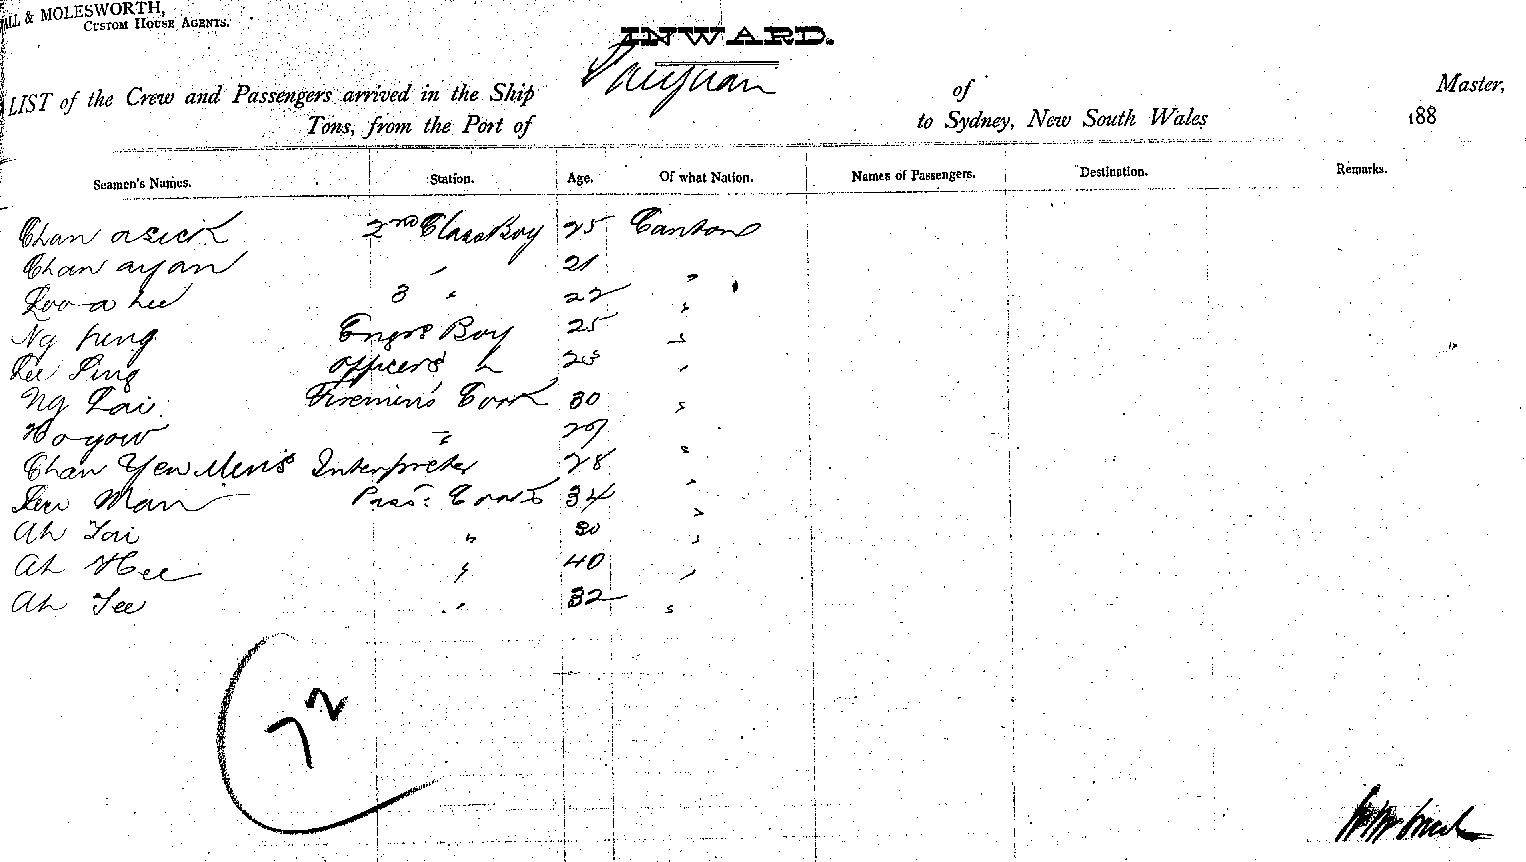 ALL & MOLESWORTH,
CUSTOM HOUSE AGENTS.
INWARD.
LIST of the Crew and Passengers arrived in the Ship Taiyuan of Master,
Tons, from the Port of to Sydney, New South Wales 188
Seamen's Names. Station. Age. Of what Nation. Names of Passengers. Destination. Remarks.
Chan asick 2nd Class Boy 25 Canton
Chan ayan " 21 "
Loo a Lee 3 " 22 "
Ng Fung Engrs Boy 25 "
Lee Ping Officers " 23 "
Ng Tai Firemin's Cook 30 "
Ho yow " 29 "
Chan Yew Men's Interpreter 28 "
Lew Man Pass. Cooks 34 "
Ah Tai " 30 "
Ah Hee " 40 "
Ah Tee " 32 "
72